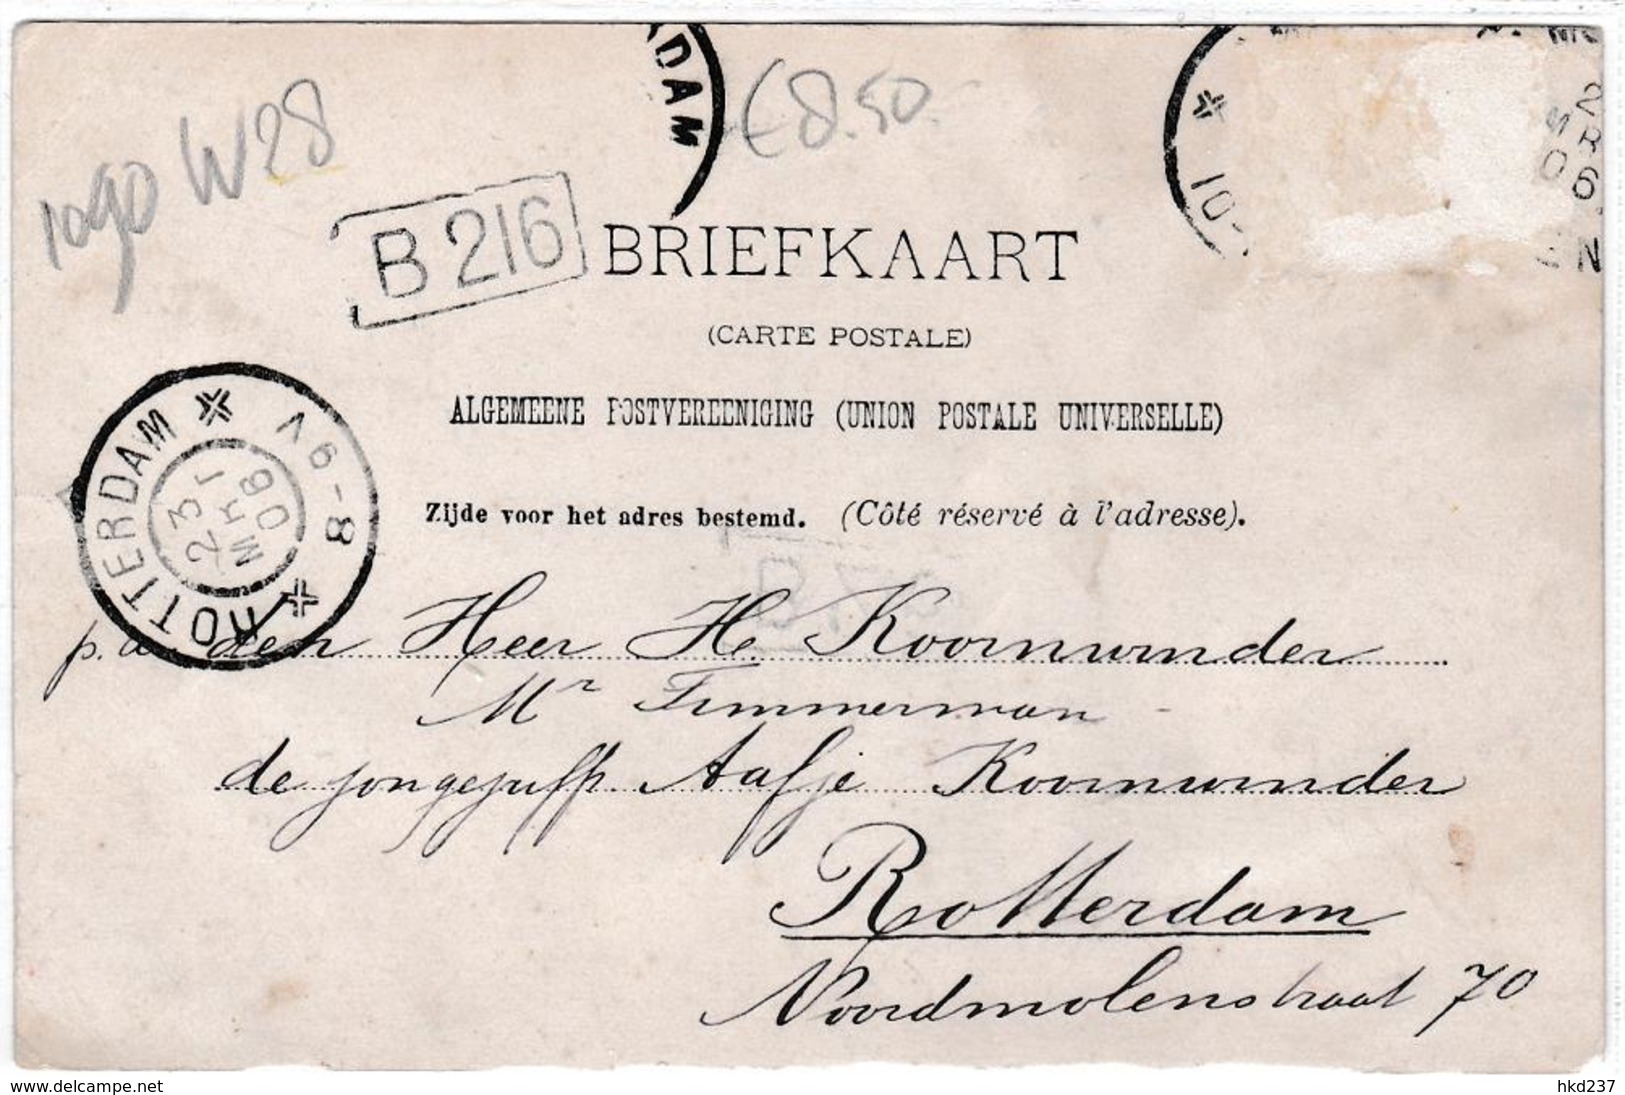 RDAM
€8.50.
10-
1090 W28
B 216
BRIEFKAART
(CARTE POSTALE)
ALGEMEENE POSTVEREENIGING (UNION POSTALE UNIVERSELLE)
ROTTERDAM
8-9V
23
MRT
06
Zijde voor het adres bestemd. (Côté réservé à l'adresse).
p. a. den Heer H. Koornwinder
Mr Timmerman
de jongejuffr. Aafje Koornwinder
Rotterdam
Noordmolenstraat 70
www.delcampe.net
hkd237